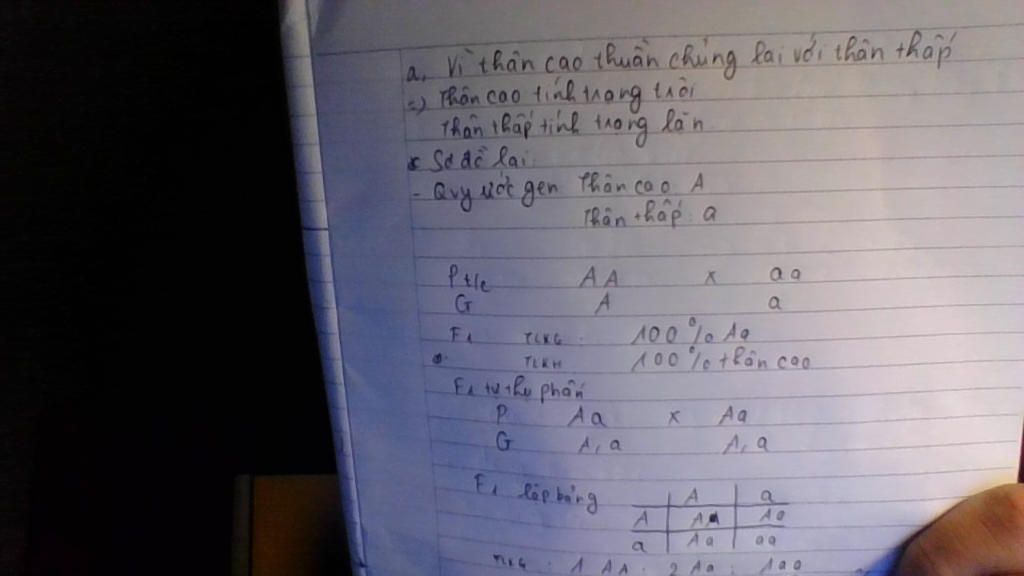 a, Vì thân cao thuần chủng lai với thân thấp
=> Thân cao tính trạng trội
Thân thấp tính trạng lặn
* Sơ đồ lai:
- Quy ước gen Thân cao A
Thân thấp: a
P t/c AA x aa
G A a
F1 TLKG: 100% Aa
TLKH 100% thân cao
F1 tự thụ phấn
P Aa x Aa
G A, a A, a
F1 lập bảng A a
A AA Aa
a Aa aa
TLKG: 1 AA : 2 Aa : 1aa